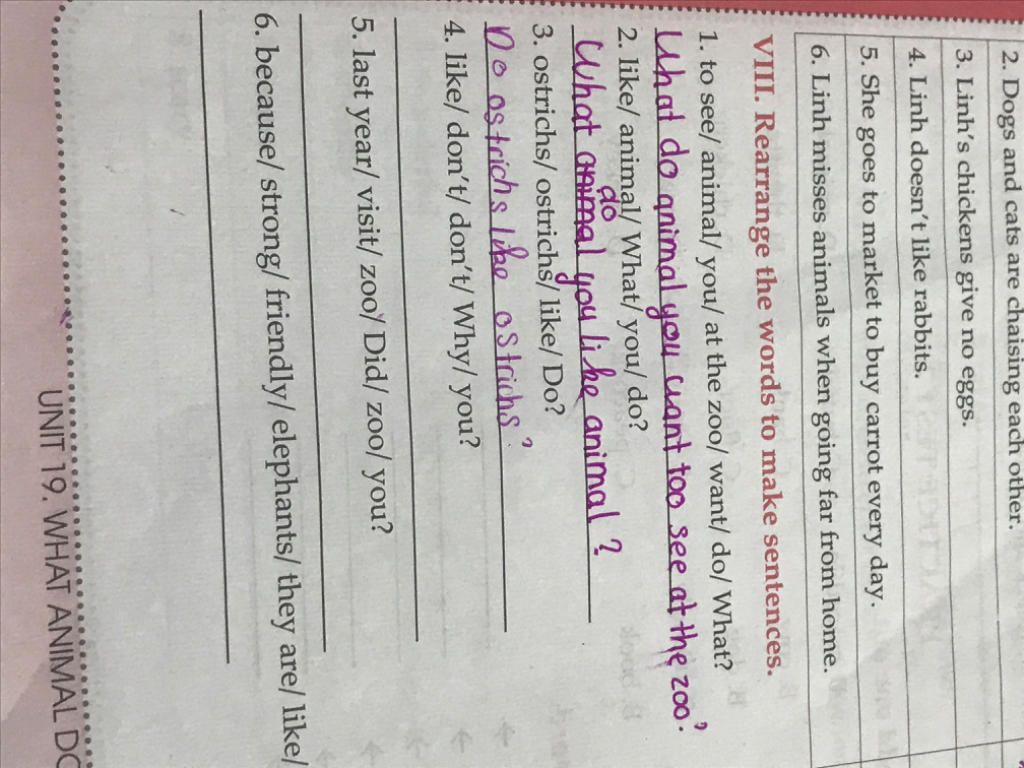 2. Dogs and cats are chaising each other.
3. Linh's chickens give no eggs.
4. Linh doesn't like rabbits.
5. She goes to market to buy carrot every day.
6. Linh misses animals when going far from home.
VIII. Rearrange the words to make sentences.
1. to see/ animal/ you/ at the zoo/ want/ do/ What?
What do animal you want too see at the zoo?
2. like/ animal/ What/ you/ do?
do
What animal you like animal ?
3. ostrichs/ ostrichs/ like/ Do?
Do ostrichs like ostrichs ?
4. like/ don't/ don't/ Why/ you?
5. last year/ visit/ zoo/ Did/ zoo/ you?
6. because/ strong/ friendly/ elephants/ they are/ like/
UNIT 19. WHAT ANIMAL DO